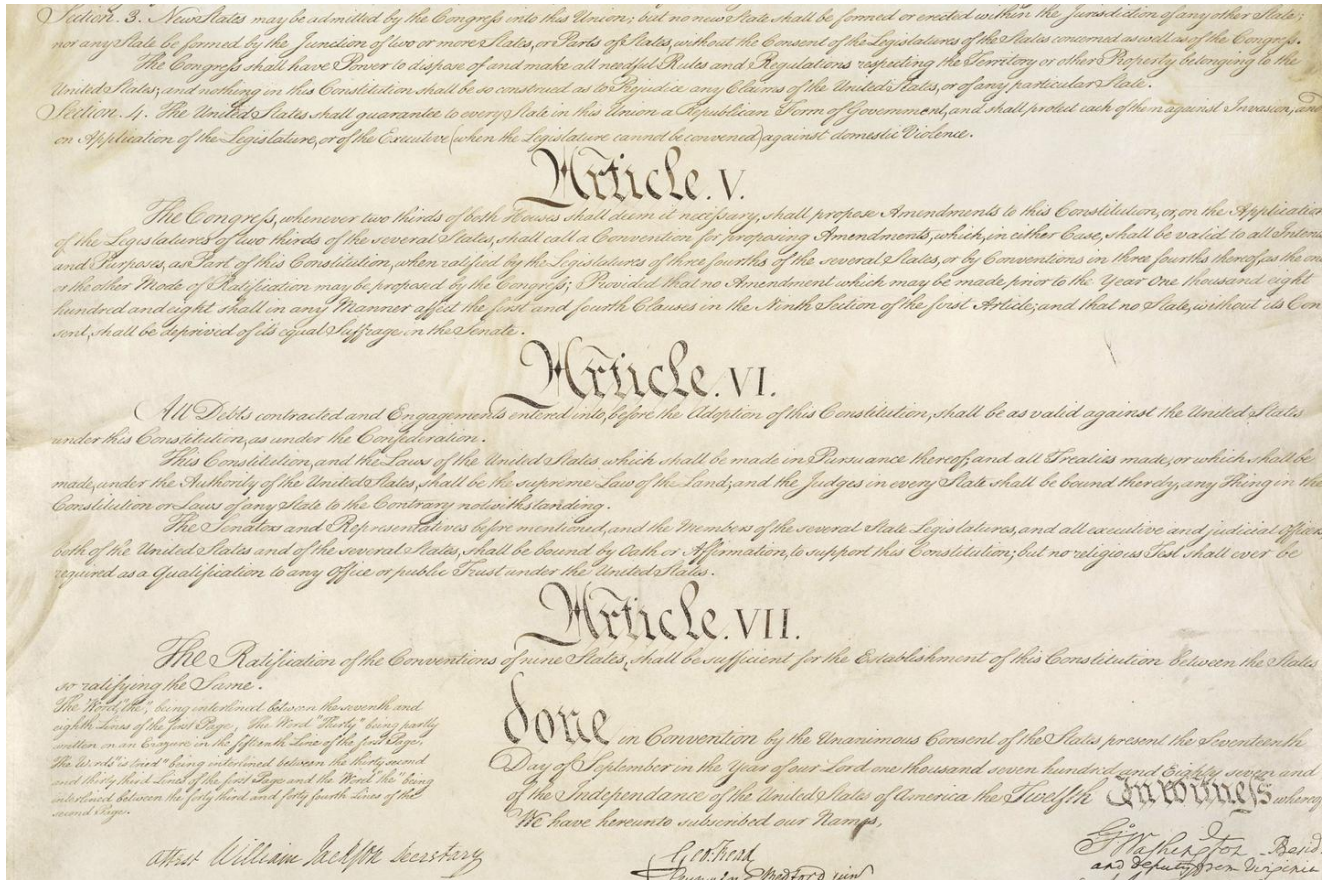 Section. 3. New States may be admitted by the Congress into this Union; but no new State shall be formed or erected within the Jurisdiction of any other State;
nor any State be formed by the Junction of two or more States, or Parts of States, without the Consent of the Legislatures of the States concerned as well as of the Congress.
The Congress shall have Power to dispose of and make all needful Rules and Regulations respecting the Territory or other Property belonging to the
United States; and nothing in this Constitution shall be so construed as to Prejudice any Claims of the United States, or of any particular State.
Section. 4. The United States shall guarantee to every State in this Union a Republican Form of Government, and shall protect each of them against Invasion; and
on Application of the Legislature, or of the Executive (when the Legislature cannot be convened) against domestic Violence.
Article. V.
The Congress, whenever two thirds of both Houses shall deem it necessary, shall propose Amendments to this Constitution, or, on the Application
of the Legislatures of two thirds of the several States, shall call a Convention for proposing Amendments, which, in either Case, shall be valid to all Intents
and Purposes, as Part of this Constitution, when ratified by the Legislatures of three fourths of the several States, or by Conventions in three fourths thereof, as the one
or the other Mode of Ratification may be proposed by the Congress; Provided that no Amendment which may be made prior to the Year One thousand eight
hundred and eight shall in any Manner affect the first and fourth Clauses in the Ninth Section of the first Article; and that no State, without its Con
sent, shall be deprived of its equal Suffrage in the Senate.
Article. VI.
All Debts contracted and Engagements entered into, before the Adoption of this Constitution, shall be as valid against the United States
under this Constitution, as under the Confederation.
This Constitution, and the Laws of the United States which shall be made in Pursuance thereof; and all Treaties made, or which shall be
made, under the Authority of the United States, shall be the supreme Law of the Land; and the Judges in every State shall be bound thereby, any Thing in the
Constitution or Laws of any State to the Contrary notwithstanding.
The Senators and Representatives before mentioned, and the Members of the several State Legislatures, and all executive and judicial Officers,
both of the United States and of the several States, shall be bound by Oath or Affirmation, to support this Constitution; but no religious Test shall ever be
required as a Qualification to any Office or public Trust under the United States.
Article. VII.
The Ratification of the Conventions of nine States, shall be sufficient for the Establishment of this Constitution between the States
so ratifying the Same.
The Word, "the," being interlined between the seventh and
eighth Lines of the first Page, The Word "Thirty" being partly
written on an Erazure in the fifteenth Line of the first Page,
The Words "is tried" being interlined between the thirty second
and thirty third Lines of the first Page and the Word "the" being
interlined between the forty third and forty fourth Lines of the
second Page.
done in Convention by the Unanimous Consent of the States present the Seventeenth
Day of September in the Year of our Lord one thousand seven hundred and Eighty seven and
of the Independance of the United States of America the Twelfth In witness whereof
We have hereunto subscribed our Names,
Attest William Jackson Secretary
Geo: Read
Gunning Bedford jun
Go. Washington Presid
and deputy from Virginia